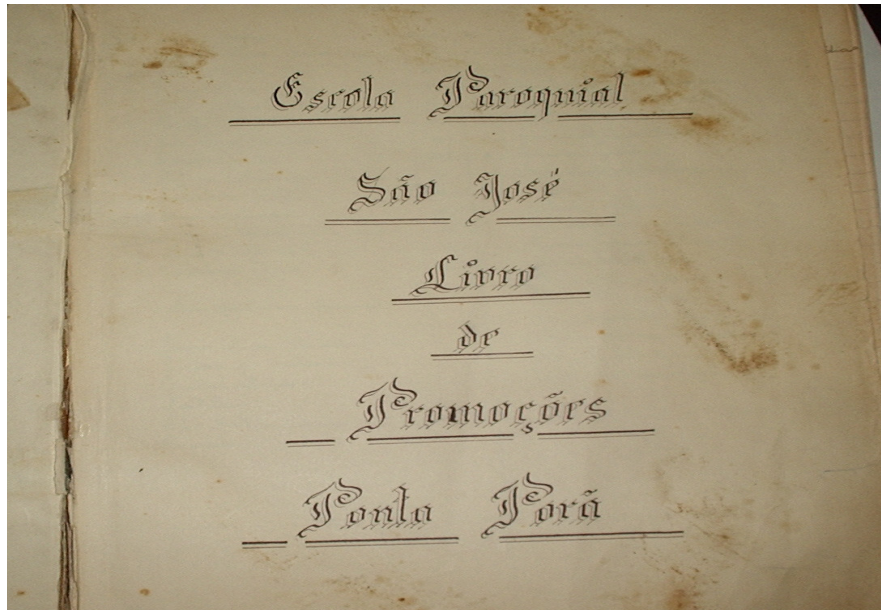 Escola Paroquial
São José
Livro
de
Promoções
Ponta Porã